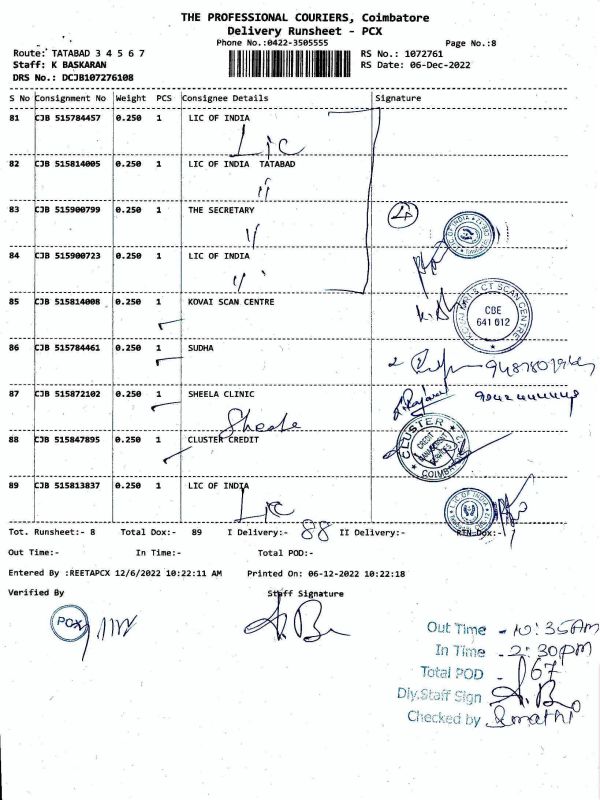 THE PROFESSIONAL COURIERS, Coimbatore
Delivery Runsheet - PCX
Phone No.:0422-3505555 Page No.:8
Route: TATABAD 3 4 5 6 7 RS No.: 1072761
Staff: K BASKARAN RS Date: 06-Dec-2022
DRS No.: DCJB107276108
S No Consignment No Weight PCS Consignee Details Signature
81 CJB 515784457 0.250 1 LIC OF INDIA
LIC
82 CJB 515814005 0.250 1 LIC OF INDIA TATABAD
〃
83 CJB 515900799 0.250 1 THE SECRETARY
〃
4
LIC OF INDIA
84 CJB 515900723 0.250 1 LIC OF INDIA
〃
85 CJB 515814008 0.250 1 KOVAI SCAN CENTRE
KOVAI MRI & CT SCAN CENTRE
CBE
641 012
86 CJB 515784461 0.250 1 SUDHA
87 CJB 515872102 0.250 1 SHEELA CLINIC
Sheela
88 CJB 515847895 0.250 1 CLUSTER CREDIT
CLUSTER
CREDIT
COIMBATORE
89 CJB 515813837 0.250 1 LIC OF INDIA
LIC
LIC OF INDIA
Tot. Runsheet:- 8 Total Dox:- 89 I Delivery:- 88 II Delivery:- RTN Dox:-
Out Time:- In Time:- Total POD:-
Entered By :REETAPCX 12/6/2022 10:22:11 AM Printed On: 06-12-2022 10:22:18
Verified By Staff Signature
PCX
Out Time - 10:35AM
In Time - 2:30pm
Total POD - 67
Dly.Staff Sign
Checked by